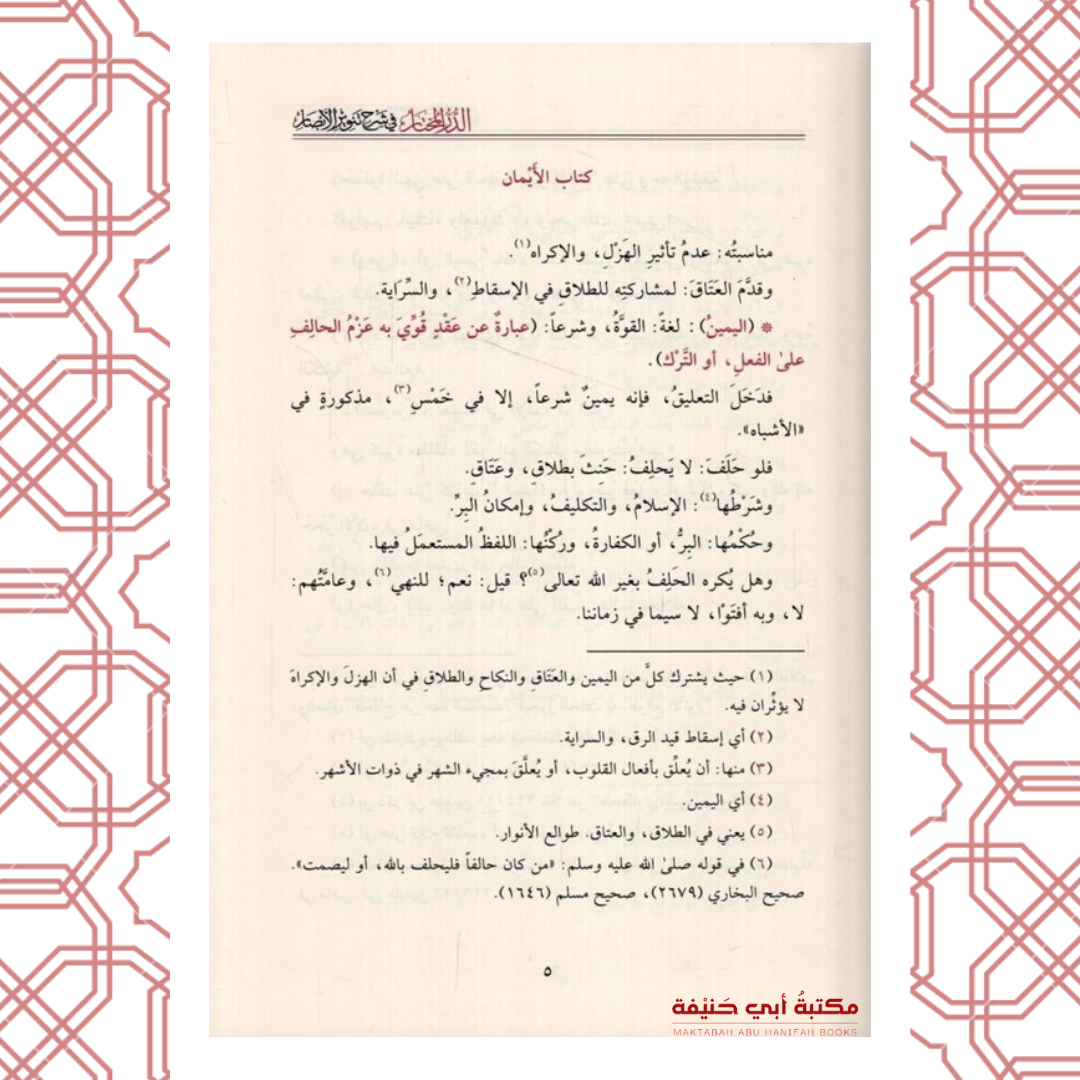 الدر المختار في شرح تنوير الأبصار
كتاب الأَيْمان
مناسبتُه: عدمُ تأثيرِ الهَزْل، والإكراه(١).
وقدَّمَ العَتَاقَ: لمشاركتِه للطلاقِ في الإسقاطِ(٢)، والسِّرَاية.
* (اليمينُ) : لغةً: القوَّةُ، وشرعاً: (عبارةٌ عن عَقْدٍ قُوِّيَ به عَزْمُ الحالِفِ
علىٰ الفعلِ، أو التَّرْك).
فدَخَلَ التعليقُ، فإنه يمينٌ شرعاً، إلا في خَمْسٍ(٣)، مذكورةٍ في
«الأشباه».
فلو حَلَفَ: لا يَحلِفُ: حَنث بطلاقٍ، وعَتَاقٍ.
وشَرْطُها(٤): الإسلامُ، والتكليفُ، وإمكانُ البِرِّ.
وحُكْمُها: البِرُّ، أو الكفارةُ، وركْنُها: اللفظُ المستعمَلُ فيها.
وهل يُكره الحَلِفُ بغير الله تعالى(٥)؟ قيل: نعم؛ للنهي(٦)، وعامَّتُهم:
لا، وبه أفتَوْا، لا سيما في زماننا.
(١) حيث يشترك كلٌّ من اليمين والعَتَاقِ والنكاحِ والطلاقِ في أن الهزلَ والإكراهَ
لا يؤثِّران فيه.
(٢) أي إسقاط قيد الرق، والسراية.
(٣) منها: أن يُعلِّق بأفعال القلوب، أو يُعلَّقَ بمجيء الشهر في ذوات الأشهر.
(٤) أي اليمين.
(٥) يعني في الطلاق، والعتاق. طوالع الأنوار.
(٦) في قوله صلىٰ الله عليه وسلم: «من كان حالفاً فليحلف بالله، أو ليصمت».
صحيح البخاري (٢٦٧٩)، صحيح مسلم (١٦٤٦).
٥
مكتبةُ أبي حَنيْفة
MAKTABAH ABU HANIFAH BOOKS